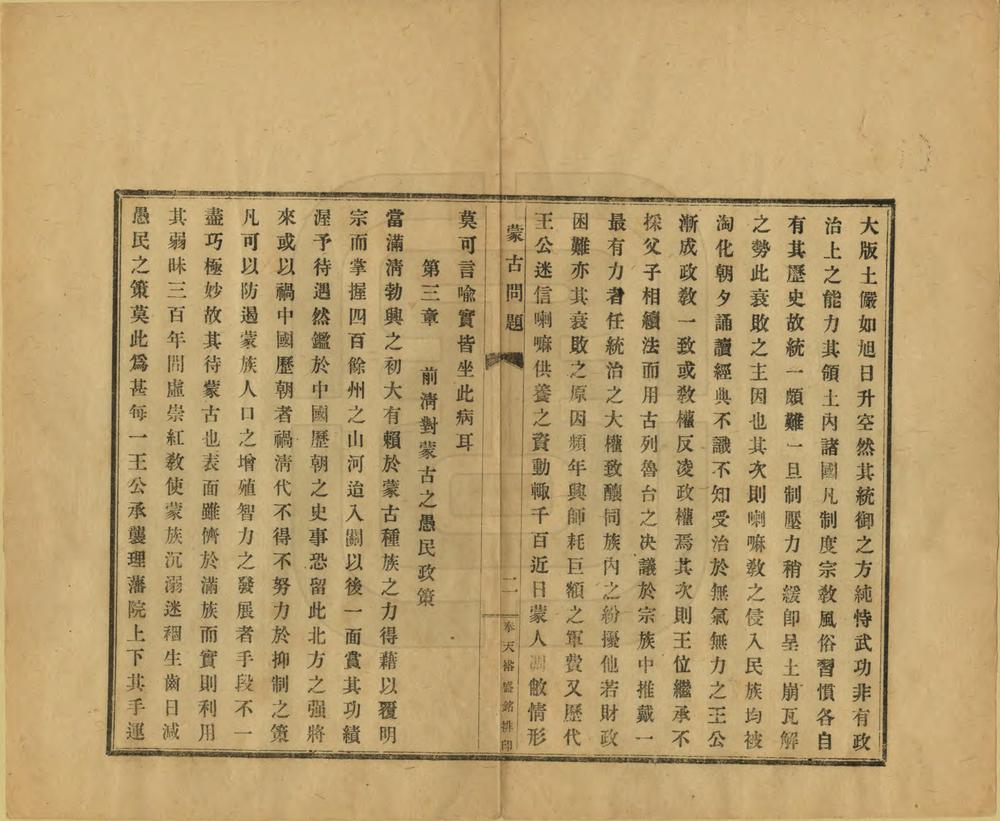 大版土儼如旭日升空然其統御之方純恃武功非有政
治上之能力其領土內諸國凡制度宗敎風俗習慣各自
有其歷史故統一頗難一旦制壓力稍緩卽呈土崩瓦解
之勢此衰敗之主因也其次則喇嘛敎之侵入民族均被
淘化朝夕誦讀經典不識不知受治於無氣無力之王公
漸成政敎一致或敎權反凌政權焉其次則王位繼承不
採父子相續法而用古列魯台之决議於宗族中推戴一
最有力者任統治之大權致釀同族內之紛擾他若財政
困難亦其衰敗之原因頻年興師耗巨額之軍費又歷代
王公迷信喇嘛供養之資動輒千百近日蒙人凋敝情形
蒙古問題
二
奉天裕盛銘排印
莫可言喩實皆坐此病耳
第三章 前淸對蒙古之愚民政策
當滿淸勃興之初大有賴於蒙古種族之力得藉以覆明
宗而掌握四百餘州之山河迨入關以後一面賞其功績
渥予待遇然鑑於中國歷朝之史事恐留此北方之强將
來或以禍中國歷朝者禍淸代不得不努力於抑制之策
凡可以防遏蒙族人口之增殖智力之發展者手段不一
盡巧極妙故其待蒙古也表面雖儕於滿族而實則利用
其弱昧三百年間虛崇紅敎使蒙族沉溺迷稇生齒日减
愚民之策莫此爲甚每一王公承襲理藩院上下其手運